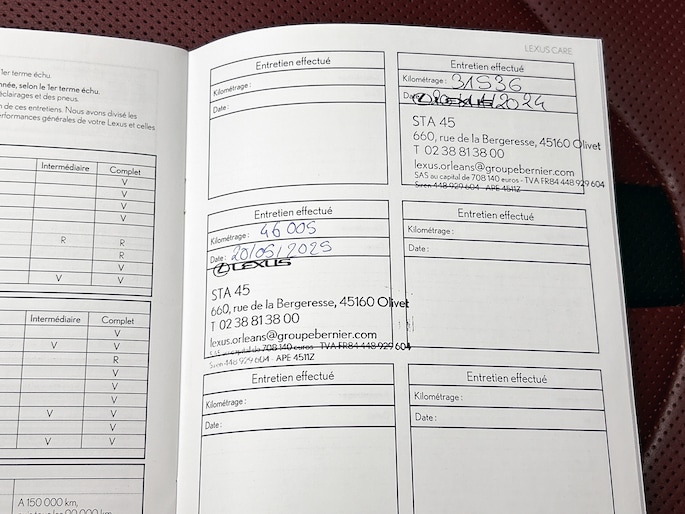 LEXUS CARE
1er terme échu.
année, selon le 1er terme échu.
éclairages et des pneus.
n de ces entretiens. Nous avons divisé les
erformances générales de votre Lexus et celles
Intermédiaire Complet
V
V
V
V
R R
R
V
V V
Intermédiaire Complet
V
V V
R
V
V
V
V V
V
V V
A 150 000 km,
Entretien effectué
Kilométrage :
Date :
Entretien effectué
Kilométrage : 31536
Date /2024
LEXUS
STA 45
660, rue de la Bergeresse, 45160 Olivet
T 02 38 81 38 00
lexus.orleans@groupebernier.com
SAS au capital de 708 140 euros - TVA FR84 448 929 604
Siren 448 929 604 - APE 4511Z
Entretien effectué
Kilométrage : 46 005
Date : 20/05/2025
LEXUS
STA 45
660, rue de la Bergeresse, 45160 Olivet
T 02 38 81 38 00
lexus.orleans@groupebernier.com
SAS au capital de 708 140 euros - TVA FR84 448 929 604
Siren 448 929 604 - APE 4511Z
Entretien effectué
Kilométrage :
Date :
Entretien effectué
Kilométrage :
Date :
Entretien effectué
Kilométrage :
Date :